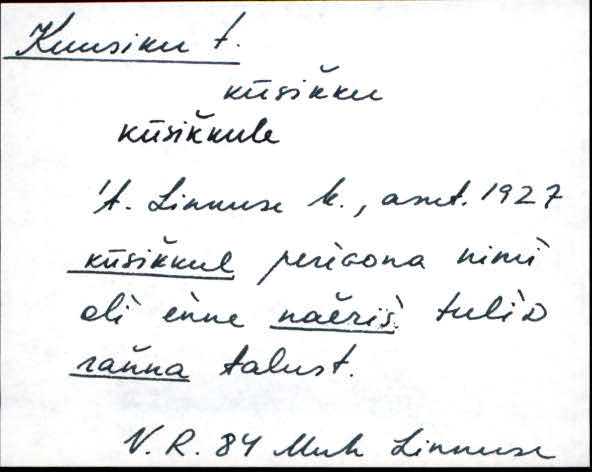 Kuusiku t.
kūsik̆ku
kūsik̆kule
't. Linnuse k., asut. 1927
kūsik̆kul perigona nimi
oli enne naĕris. tulio
rañna talust.
V. R. 84 Muh Linnuse